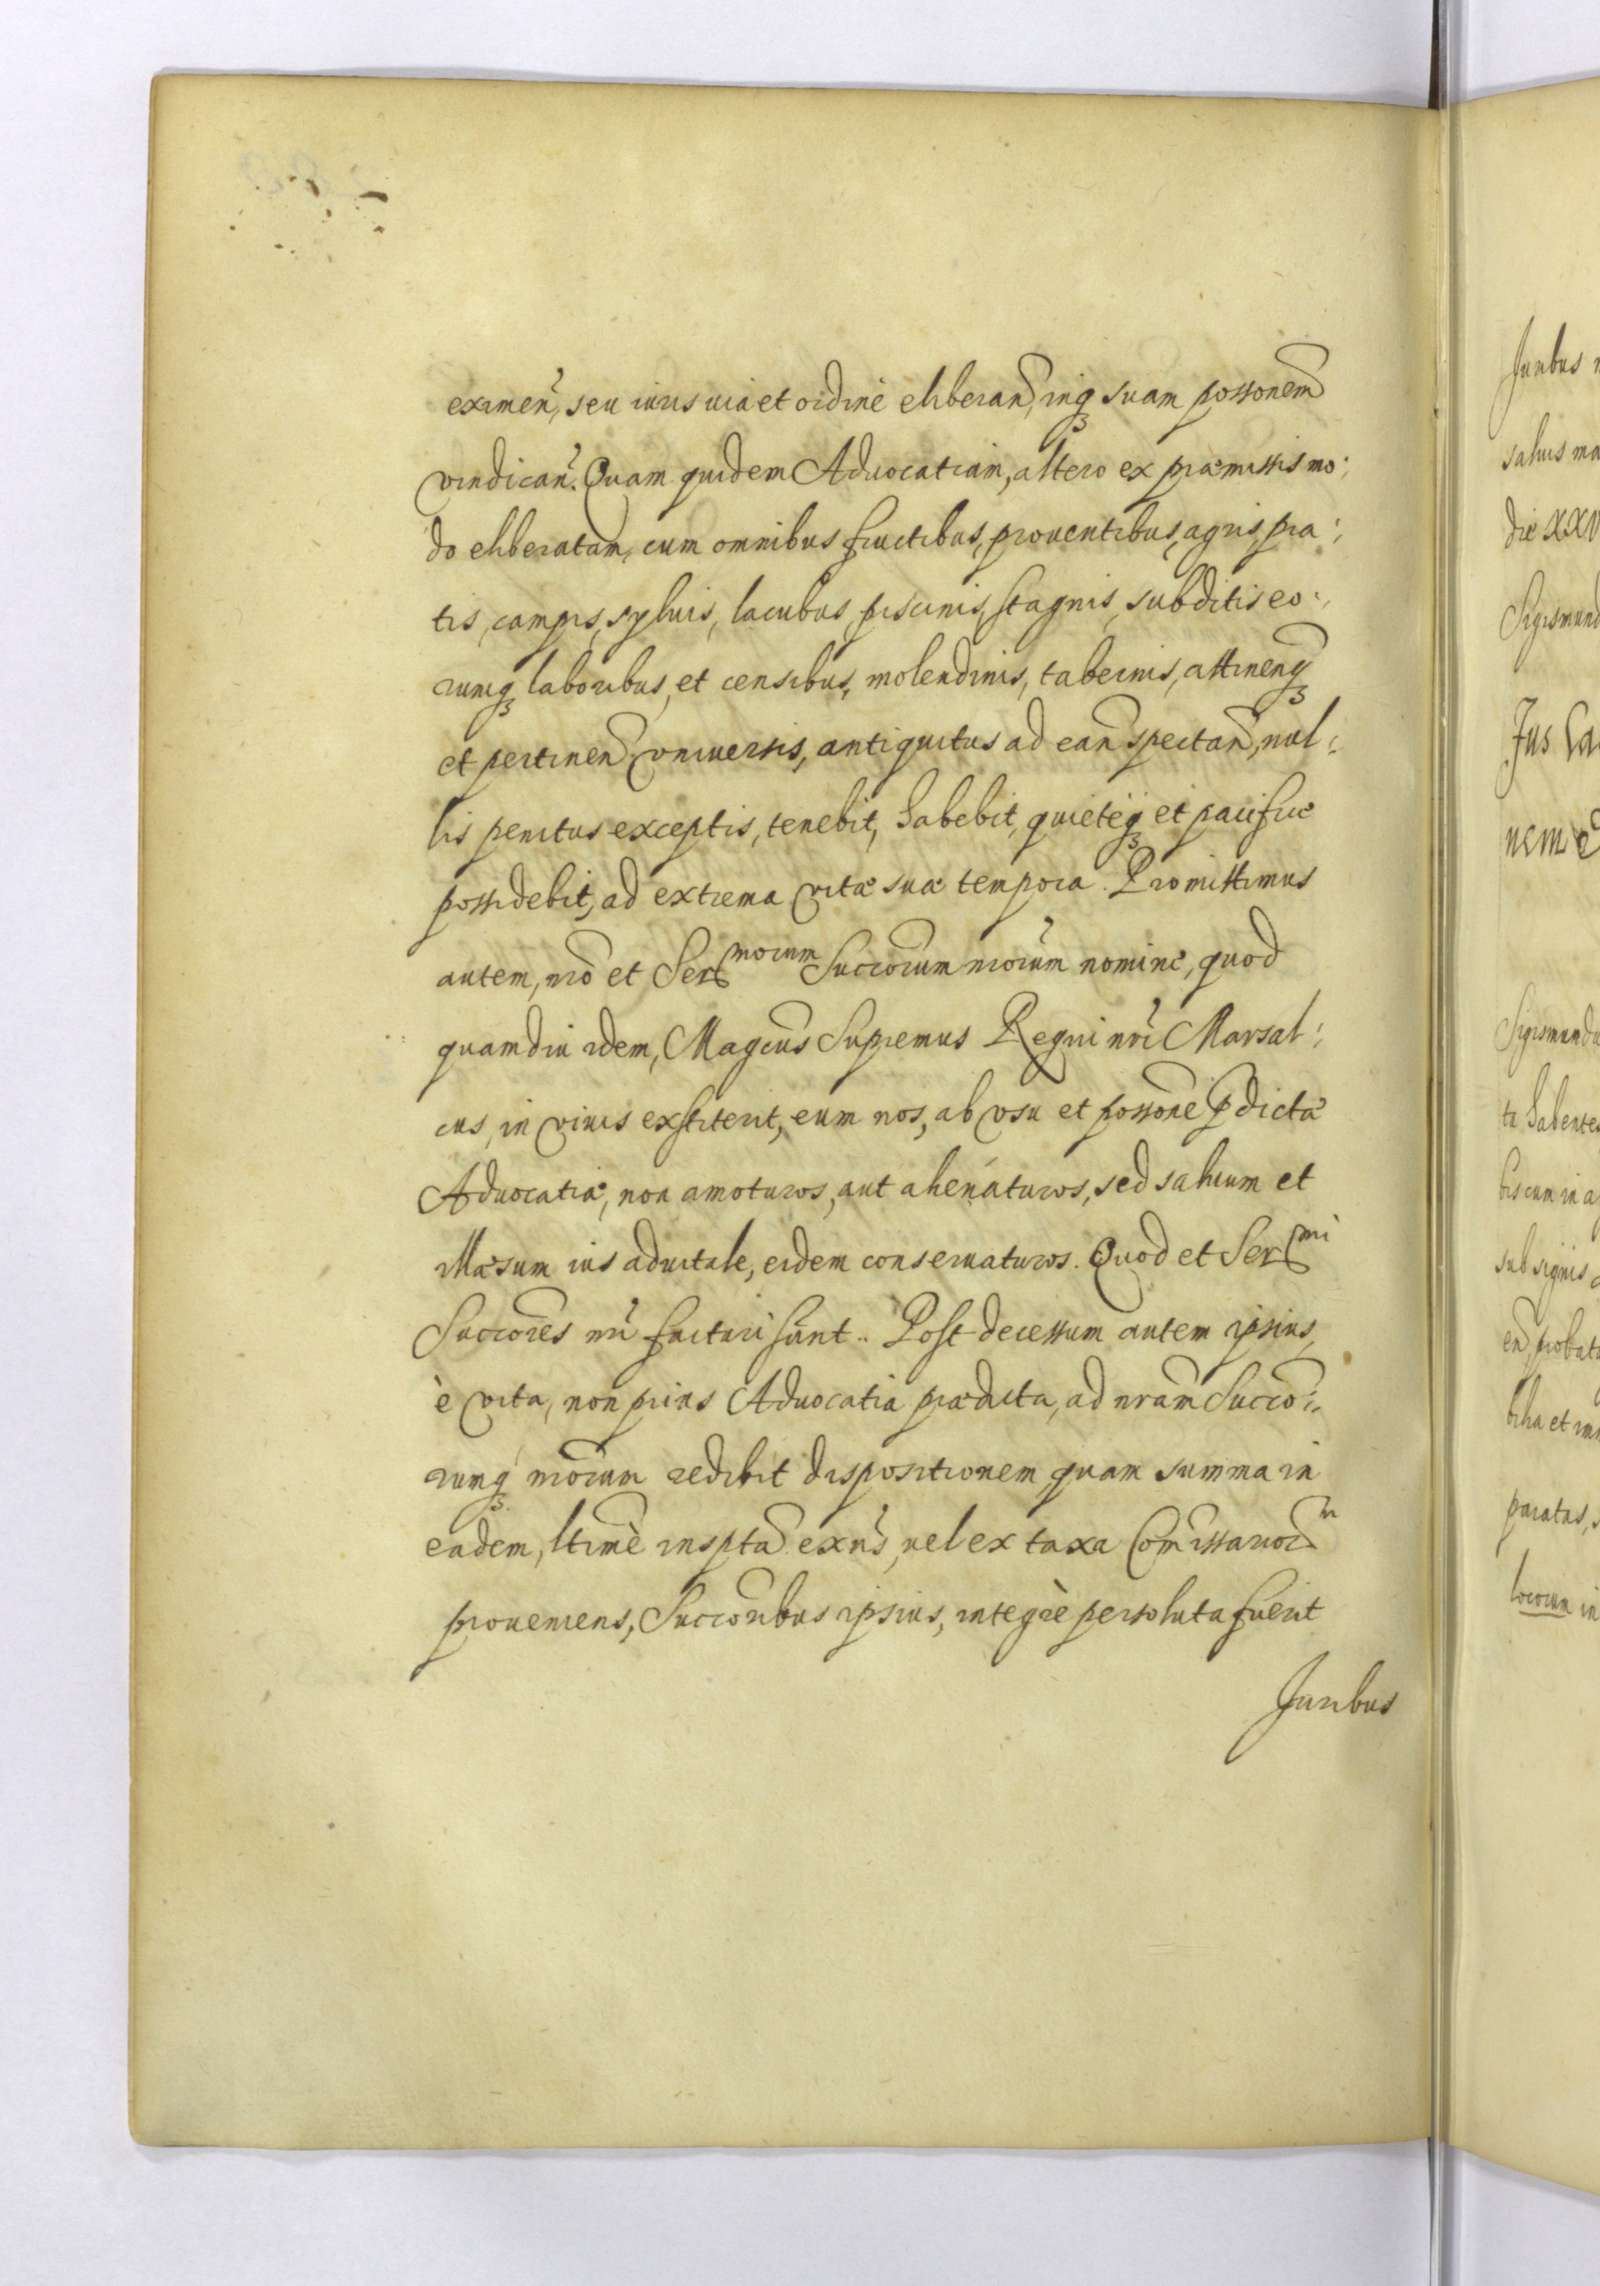 eximen, seu iuris uia et ordine eliberan, inq suam possonem
vindican. Quam quidem Aduocatiam, altero ex præmissis mo:
do eliberatam, cum omnibus fructibus, prouentibus, agris, pra:
tis, campis, syluis, lacubus, piscinis, stagnis, subditis eo:
rumq laboribus, et censibus, molendinis, tabernis, attinenq
et pertinen vniuersis, antiquitus ad eam spectan, nul:
lis penitus exceptis, tenebit, habebit, quieteq et pacifice
possidebit, ad extrema vitæ suæ tempora. Promittimus
autem, nro et Sermorum Succorum nrorum nomine, quod
quamdiu idem, Magcus Supremus Regni nri Marsal:
cus, in viuis exstiterit, eum nos, ab vsu et possone pdictæ
Aduocatiæ, non amoturos, aut alienaturos, sed saluum et
illæsum ius aduitale, eidem conseruaturos. Quod et Sermi
Succores nri facturi sunt. Post decessum autem ipsius,
è vita, non prius Aduocatia prædicta, ad nram Succo:
rumq nrorum redibit dispositionem, quam summa in
eadem, ltimè inspta exnũs, uel ex taxa Comissariorm
proueniens, Succoribus ipsius, integrè persoluta fuerit
Juribus
Juribus
saluis
die
Jus
nem
paratas,
locorum in